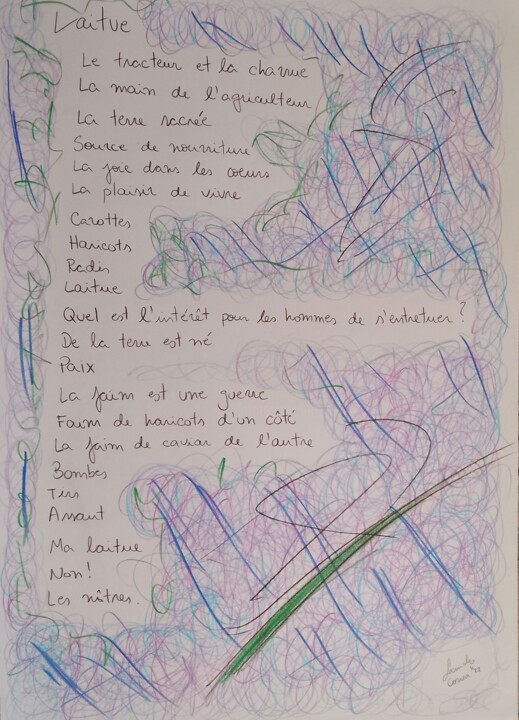 Laitue
Le tracteur et la charrue
La main de l'agriculteur
La terre sacrée
Source de nourriture
La joie dans les coeurs
La plaisir de vivre
Carottes
Haricots
Radis
Laitue
Quel est l'intérêt pour les hommes de s'entretuer ?
De la terre est né
Paix
La faim est une guerre
Faim de haricots d'un côté
La faim de caviar de l'autre
Bombes
Tirs
Assaut
Ma laitue
Non!
Les nôtres.